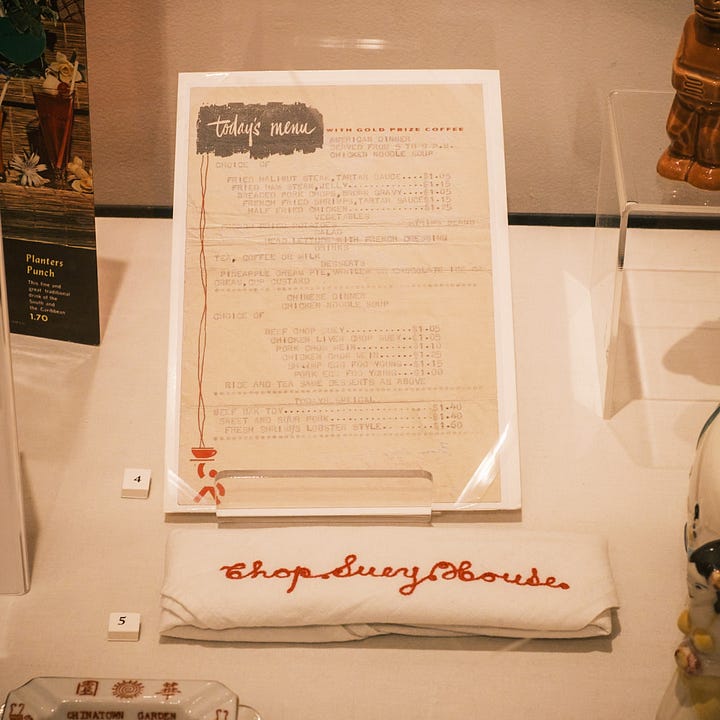 today's menu
WITH GOLD PRIZE COFFEE
AMERICAN DINNER
SERVED FROM 5 TO 9 P.M.
CHICKEN NOODLE SOUP
CHOICE OF
FRIED HALIBUT STEAK,TARTAR SAUCE....$1.05
FRIED HAM STEAK,JELLY
BREADED PORK CHOPS,BROWN GRAVY
FRENCH FRIED SHRIMPS,TARTAR SAUCE$1.15
HALF FRIED CHICKEN
VEGETABLES
SALAD
HEAD LETTUCE WITH FRENCH DRESSING
DRINKS
TEA, COFFEE OR MILK
DESSERTS
PINEAPPLE CREAM PIE,VANILLA OR CHOCOLATE ICE
CREAM,CUP CUSTARD
CHINESE DINNER
CHICKEN NOODLE SOUP
CHOICE OF
BEEF CHOP SUEY...........$1.05
CHICKEN LIVER CHOP SUEY..$1.05
PORK CHOW MEIN...........$1.10
CHICKEN CHOW MEIN........$1.25
EGG FOO YOUNG....$1.15
PORK EGG FOO YOUNG
RICE AND TEA SAME DESSERTS AS ABOVE
TODAYS SPECIAL
BEEF $1.40
SWEET AND SOUR PORK $1.40
FRESH SHRIMPS LOBSTER STYLE $1.50
Planters
Punch
This fine and
great traditional
drink of the
South and
the Caribbean
1.70
4
Chop Suey House
5
園 華
CHINATOWN GARDEN